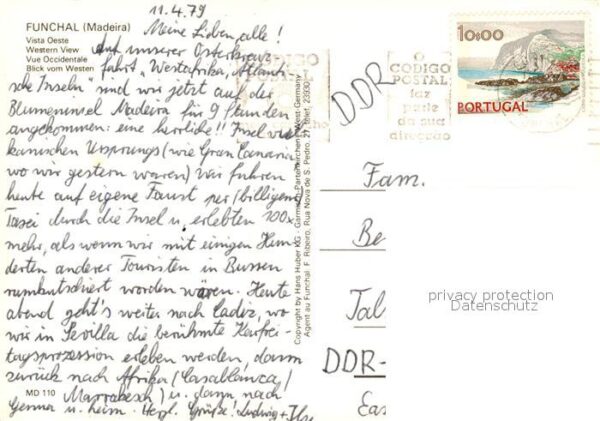 11.4.79
FUNCHAL (Madeira)
Vista Oeste
Western View
Vue Occidentale
Blick vom Westen
Meine Lieben alle!
Auf unserer Osterkreuz-
fahrt „Westafrika, Atlanti-
sche Inseln" sind wir jetzt auf der
Blumeninsel Madeira für 9 Stunden
angekommen: eine herrliche!! Insel vul-
kanischen Ursprungs (wie Gran Canaria
wo wir gestern waren) Wir fuhren
heute auf eigene Faust per (billigem)
Taxi durch die Insel u. erlebten 100x
mehr, als wenn wir mit einigen Hun-
derten anderer Touristen in Bussen
rumkutschiert worden wären. Heute
abend geht's weiter nach Cadiz, wo
wir in Sevilla die berühmte Karfrei-
tagsprozession erleben werden, dann
zurück nach Afrika (Casablanca/
Marrakesch) u. dann nach
Genua u. heim. Herzl. Grüße! Ludwig + Ilse
MD 110
Copyright by Hans Huber KG - Garmisch-Partenkirchen - West Germany
Agent au Funchal: F. Ribeiro, Rua Nova de S. Pedro, 27, Telef. 23930
O
CÓDIGO
POSTAL
faz
parte
da sua
direcção
10$00
PORTUGAL
DDR
Fam.
Be
Tal
DDR-
privacy protection
Datenschutz